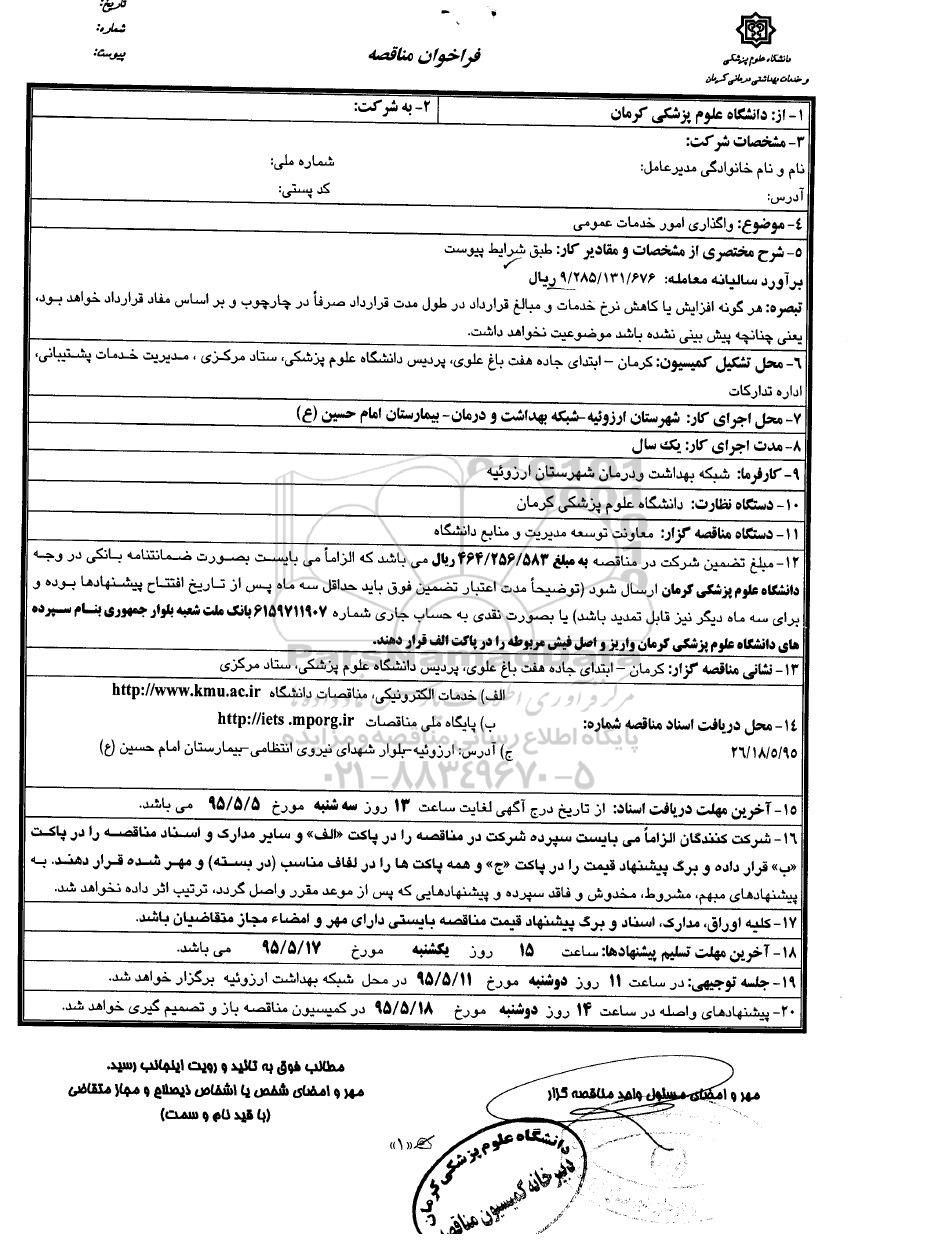 تاریخ:
شماره:
پیوست:
فراخوان مناقصه
دانشگاه علوم پزشکی
و خدمات بهداشتی درمانی کرمان
۱- از: دانشگاه علوم پزشکی کرمان
۲- به شرکت:
۳- مشخصات شرکت:
نام و نام خانوادگی مدیرعامل:
شماره ملی:
آدرس:
کد پستی:
۴- موضوع: واگذاری امور خدمات عمومی
۵- شرح مختصری از مشخصات و مقادیر کار: طبق شرایط پیوست
برآورد سالیانه معامله: ۹/۲۸۵/۱۳۱/۶۷۶ ریال
تبصره: هر گونه افزایش یا کاهش نرخ خدمات و مبالغ قرارداد در طول مدت قرارداد صرفاً در چارچوب و بر اساس مفاد قرارداد خواهد بود،
یعنی چنانچه پیش بینی نشده باشد موضوعیت نخواهد داشت.
۶- محل تشکیل کمیسیون: کرمان – ابتدای جاده هفت باغ علوی، پردیس دانشگاه علوم پزشکی، ستاد مرکزی ، مدیریت خدمات پشتیبانی،
اداره تدارکات
۷- محل اجرای کار: شهرستان ارزوئیه-شبکه بهداشت و درمان- بیمارستان امام حسین (ع)
۸- مدت اجرای کار: یک سال
۹- کارفرما: شبکه بهداشت ودرمان شهرستان ارزوئیه
۱۰- دستگاه نظارت: دانشگاه علوم پزشکی کرمان
۱۱- دستگاه مناقصه گزار: معاونت توسعه مدیریت و منابع دانشگاه
۱۲- مبلغ تضمین شرکت در مناقصه به مبلغ ۴۶۴/۲۵۶/۵۸۳ ریال می باشد که الزاماً می بایست بصورت ضمانتنامه بانکی در وجه
دانشگاه علوم پزشکی کرمان ارسال شود (توضیحاً مدت اعتبار تضمین فوق باید حداقل سه ماه پس از تاریخ افتتاح پیشنهادها بوده و
برای سه ماه دیگر نیز قابل تمدید باشد) یا بصورت نقدی به حساب جاری شماره ۶۱۵۹۷۱۱۹۰۷ بانک ملت شعبه بلوار جمهوری بنام سپرده
های دانشگاه علوم پزشکی کرمان واریز و اصل فیش مربوطه را در پاکت الف قرار دهند.
۱۳- نشانی مناقصه گزار: کرمان – ابتدای جاده هفت باغ علوی، پردیس دانشگاه علوم پزشکی، ستاد مرکزی
۱۴- محل دریافت اسناد مناقصه شماره:
۲۶/۱۸/۵/۹۵
الف) خدمات الکترونیکی، مناقصات دانشگاه http://www.kmu.ac.ir
ب) پایگاه ملی مناقصات http://iets .mporg.ir
ج) آدرس: ارزوئیه-بلوار شهدای نیروی انتظامی-بیمارستان امام حسین (ع)
ParsNamadData
پایگاه اطلاع رسانی مناقصه و مزایده
۰۲۱-۸۸۳۴۹۶۷۰-۵
۱۵- آخرین مهلت دریافت اسناد: از تاریخ درج آگهی لغایت ساعت ۱۳ روز سه شنبه مورخ ۹۵/۵/۵ می باشد.
۱۶- شرکت کنندگان الزاماً می بایست سپرده شرکت در مناقصه را در پاکت «الف» و سایر مدارک و اسناد مناقصه را در پاکت
«ب» قرار داده و برگ پیشنهاد قیمت را در پاکت «ج» و همه پاکت ها را در لفاف مناسب (در بسته) و مهر شده قرار دهند. به
پیشنهادهای مبهم، مشروط، مخدوش و فاقد سپرده و پیشنهادهایی که پس از موعد مقرر واصل گردد، ترتیب اثر داده نخواهد شد.
۱۷- کلیه اوراق، مدارک، اسناد و برگ پیشنهاد قیمت مناقصه بایستی دارای مهر و امضاء مجاز متقاضیان باشد.
۱۸- آخرین مهلت تسلیم پیشنهادها: ساعت ۱۵ روز یکشنبه مورخ ۹۵/۵/۱۷ می باشد.
۱۹- جلسه توجیهی: در ساعت ۱۱ روز دوشنبه مورخ ۹۵/۵/۱۱ در محل شبکه بهداشت ارزوئیه برگزار خواهد شد.
۲۰- پیشنهادهای واصله در ساعت ۱۴ روز دوشنبه مورخ ۹۵/۵/۱۸ در کمیسیون مناقصه باز و تصمیم گیری خواهد شد.
مهر و امضای مسئول واحد مناقصه گزار
مطالب فوق به تائید و رویت اینجانب رسید.
مهر و امضای شخص یا اشخاص ذیصلاح و مجاز متقاضی
(با قید نام و سمت)
«۱»
دانشگاه علوم پزشکی کرمان
دبیرخانه کمیسیون مناقصه